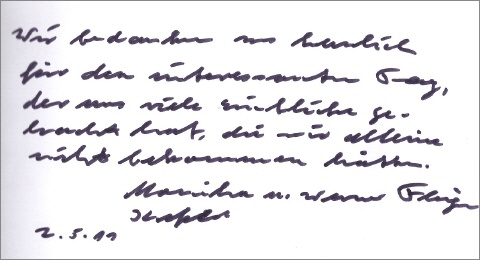 Wir bedanken uns herzlich
für den interessanten Tag,
der uns viele Einblicke ge-
bracht hat, die wir alleine
nicht bekommen hätten.
Monika u. Werner
2.5.11